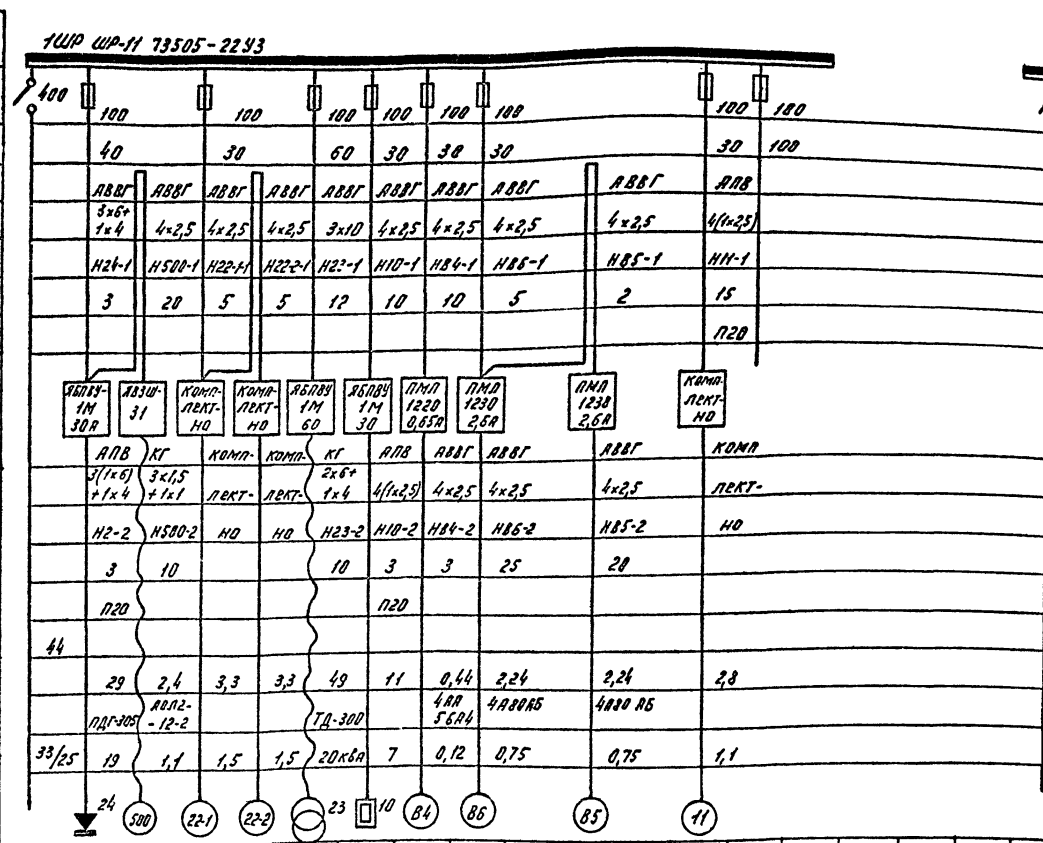 1ШР ШР-11 73505-22У3
400
100 100 100 100 100 100 100 100
40 30 60 30 30 30 30 100
АВВГ АВВГ АВВГ АВВГ АВВГ АВВГ АВВГ АВВГ АВВГ АПВ
3x6+
1x4 4x2,5 4x2,5 4x2,5 3x10 4x2,5 4x2,5 4x2,5 4x2,5 4(1x2,5)
Н24-1 Н500-1 Н22-1-1 Н22-2-1 Н23-1 Н10-1 НВ4-1 НВ6-1 НВ5-1 Н11-1
3 20 5 5 12 10 10 5 2 15
П20
ЯБПВУ-
1М
30А
ЯВЗШ-
31
КОМП-
ЛЕКТ-
НО
КОМП-
ЛЕКТ-
НО
ЯБПВУ
1М
60
ЯБПВУ
1М
30
ПМЛ
1220
0,65А
ПМЛ
1230
2,6А
ПМЛ
1230
2,6А
КОМП-
ЛЕКТ-
НО
АПВ КГ КОМП- КОМП- КГ АПВ АВВГ АВВГ АВВГ КОМП
3(1x6) 3x1,5 2x6+
+1x4 +1x1 ЛЕКТ- ЛЕКТ- 1x4 4(1x2,5) 4x2,5 4x2,5 4x2,5 ЛЕКТ-
Н2-2 Н500-2 НО НО Н23-2 Н10-2 НВ4-2 НВ6-2 НВ5-2 НО
3 10 10 3 3 25 28
П20 П20
44
29 2,4 3,3 3,3 49 11 0,44 2,24 2,24 2,8
ПДГ-305 АОЛ2-
-12-2 ТД-300 4АА
56А4 4А80А6 4А80А6
33/25 19 1,1 1,5 1,5 20кВА 7 0,12 0,75 0,75 1,1
24 500 22-1 22-2 23 10 В4 В6 В5 11